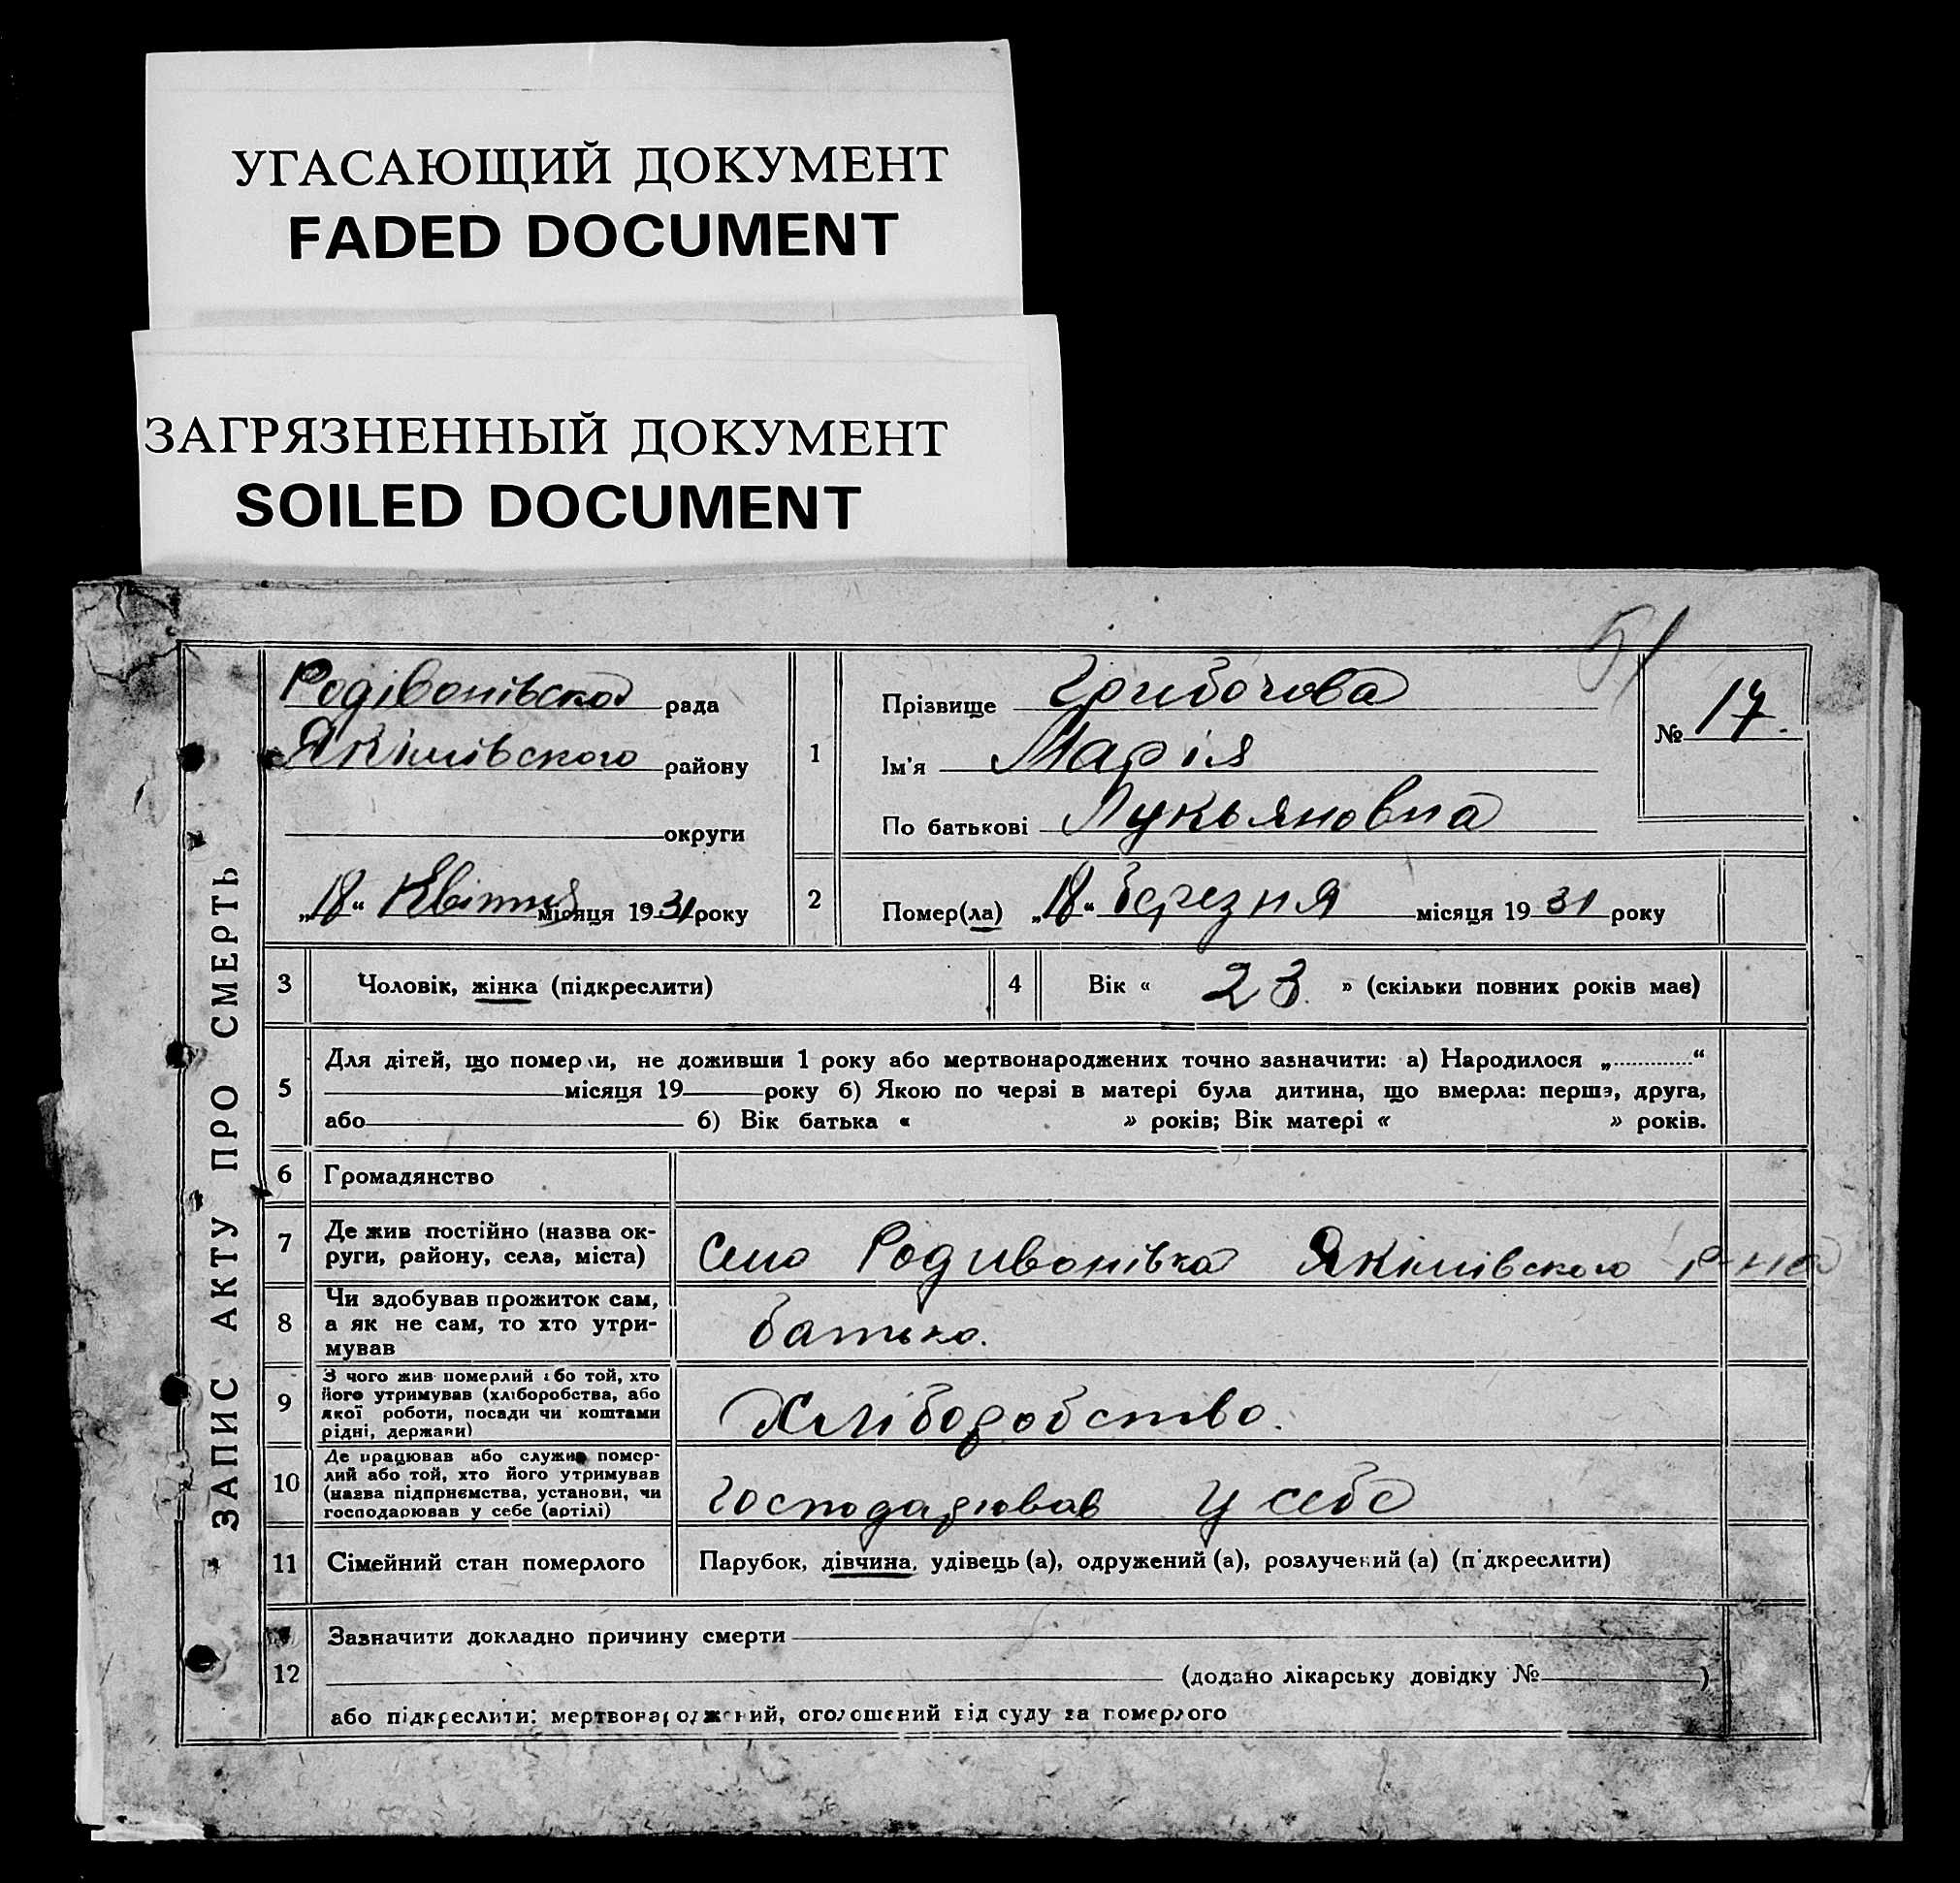 УГАСАЮЩИЙ ДОКУМЕНТ
FADED DOCUMENT
ЗАГРЯЗНЕННЫЙ ДОКУМЕНТ
SOILED DOCUMENT
51
ЗАПИС АКТУ ПРО СМЕРТЬ
Родівонівська рада
Якімівського району
округи
„18“ Квітня місяця 1931 року
1
Прізвище Грибочова
Ім'я Марія
По батькові Лукьяновна
№ 17.
2
Помер(ла) „18“ Березня місяця 1931 року
3 Чоловік, жінка (підкреслити)
4 Вік « 23. » (скільки повних років має)
5
Для дітей, що померли, не доживши 1 року або мертвонароджених точно зазначити: а) Народилося „............“
місяця 19 року б) Якою по черзі в матері була дитина, що вмерла: перша, друга,
або б) Вік батька « » років; Вік матері « » років.
6 Громадянство
7
Де жив постійно (назва ок-
руги, району, села, міста)
Село Родивонівка Якімівського р-на
8
Чи здобував прожиток сам,
а як не сам, то хто утри-
мував
батько.
9
З чого жив померлий або той, хто
його утримував (хліборобства, або
якої роботи, посади чи коштами
рідні, держави)
Хліборобство.
10
Де працював або служив помер-
лий або той, хто його утримував
(назва підприємства, установи, чи
господарював у себе (артілі)
Господарював у себе
11 Сімейний стан померлого
Парубок, дівчина, удівець (а), одружений (а), розлучений (а) (підкреслити)
12
Зазначити докладно причину смерти
(додано лікарську довідку № )
або підкреслити: мертвонароджений, оголошений від суду за померлого